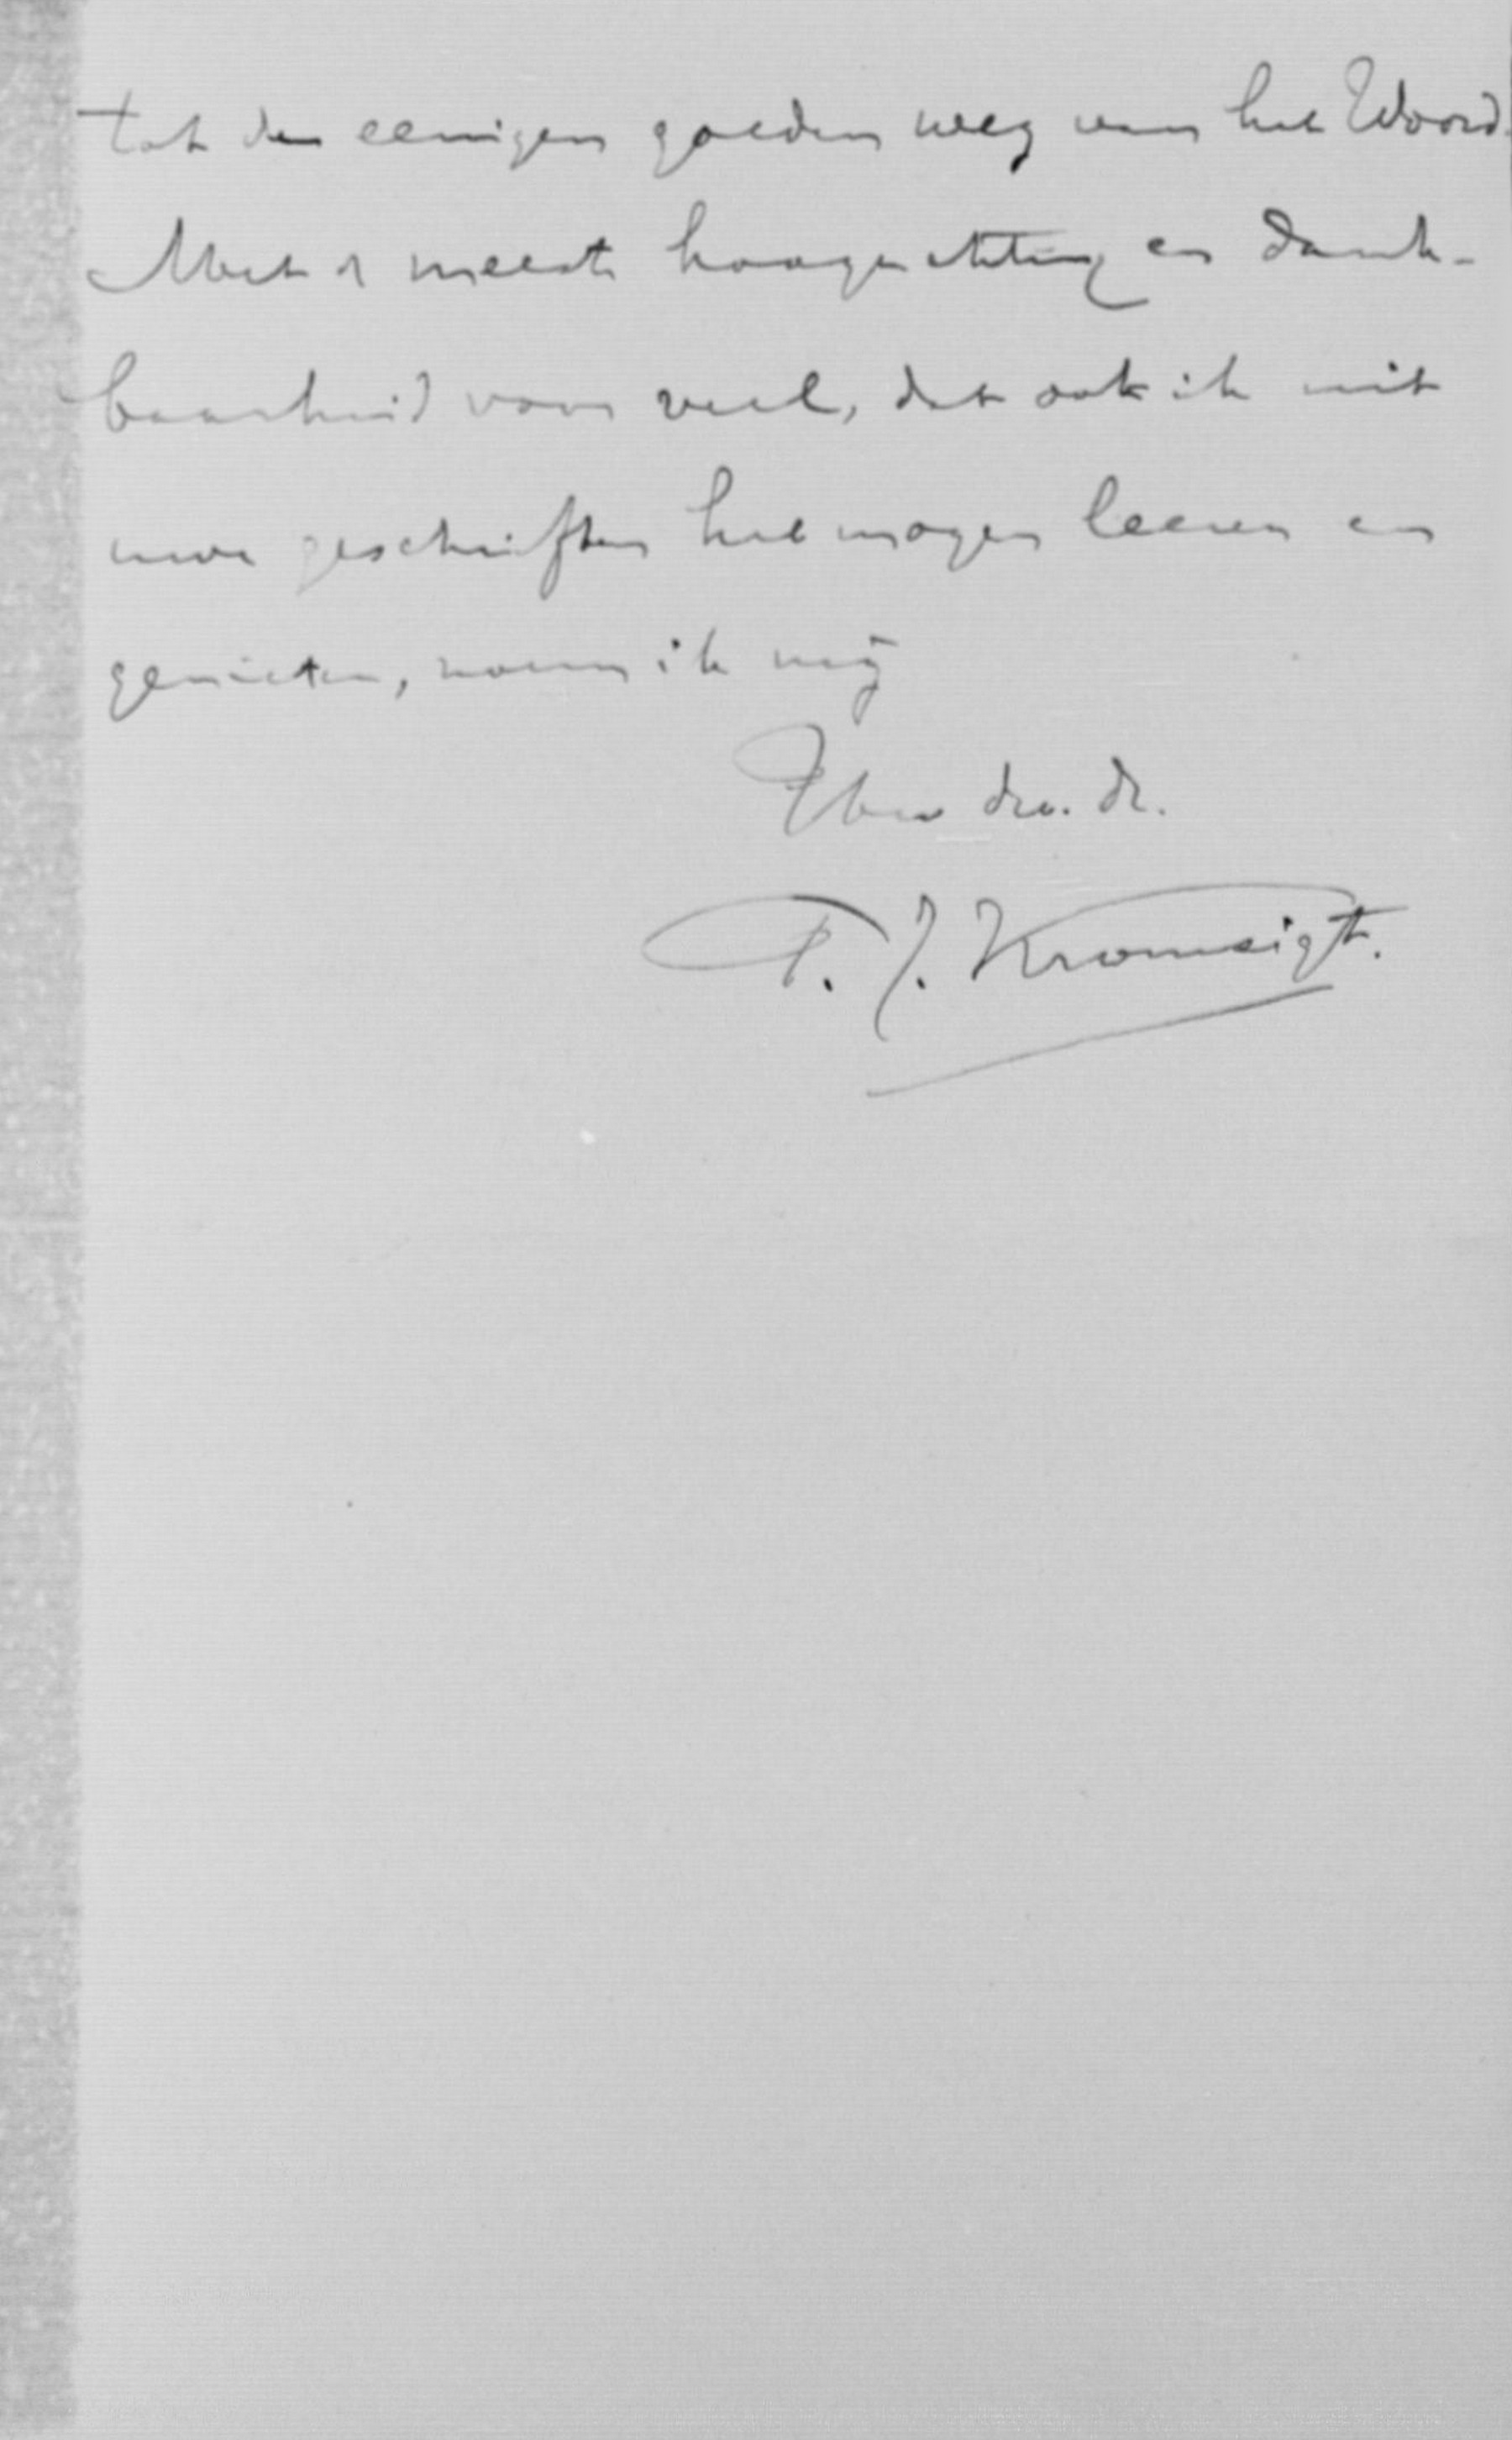 tot den eenigen goeden weg van het Woord.
Met d meeste hoogachting en dank-
baarheid voor veel, dat ook ik uit
uwe geschriften heb mogen leeren en
genieten, noem ik mij
Uw dw. dr.
P. J. Kromsigt.